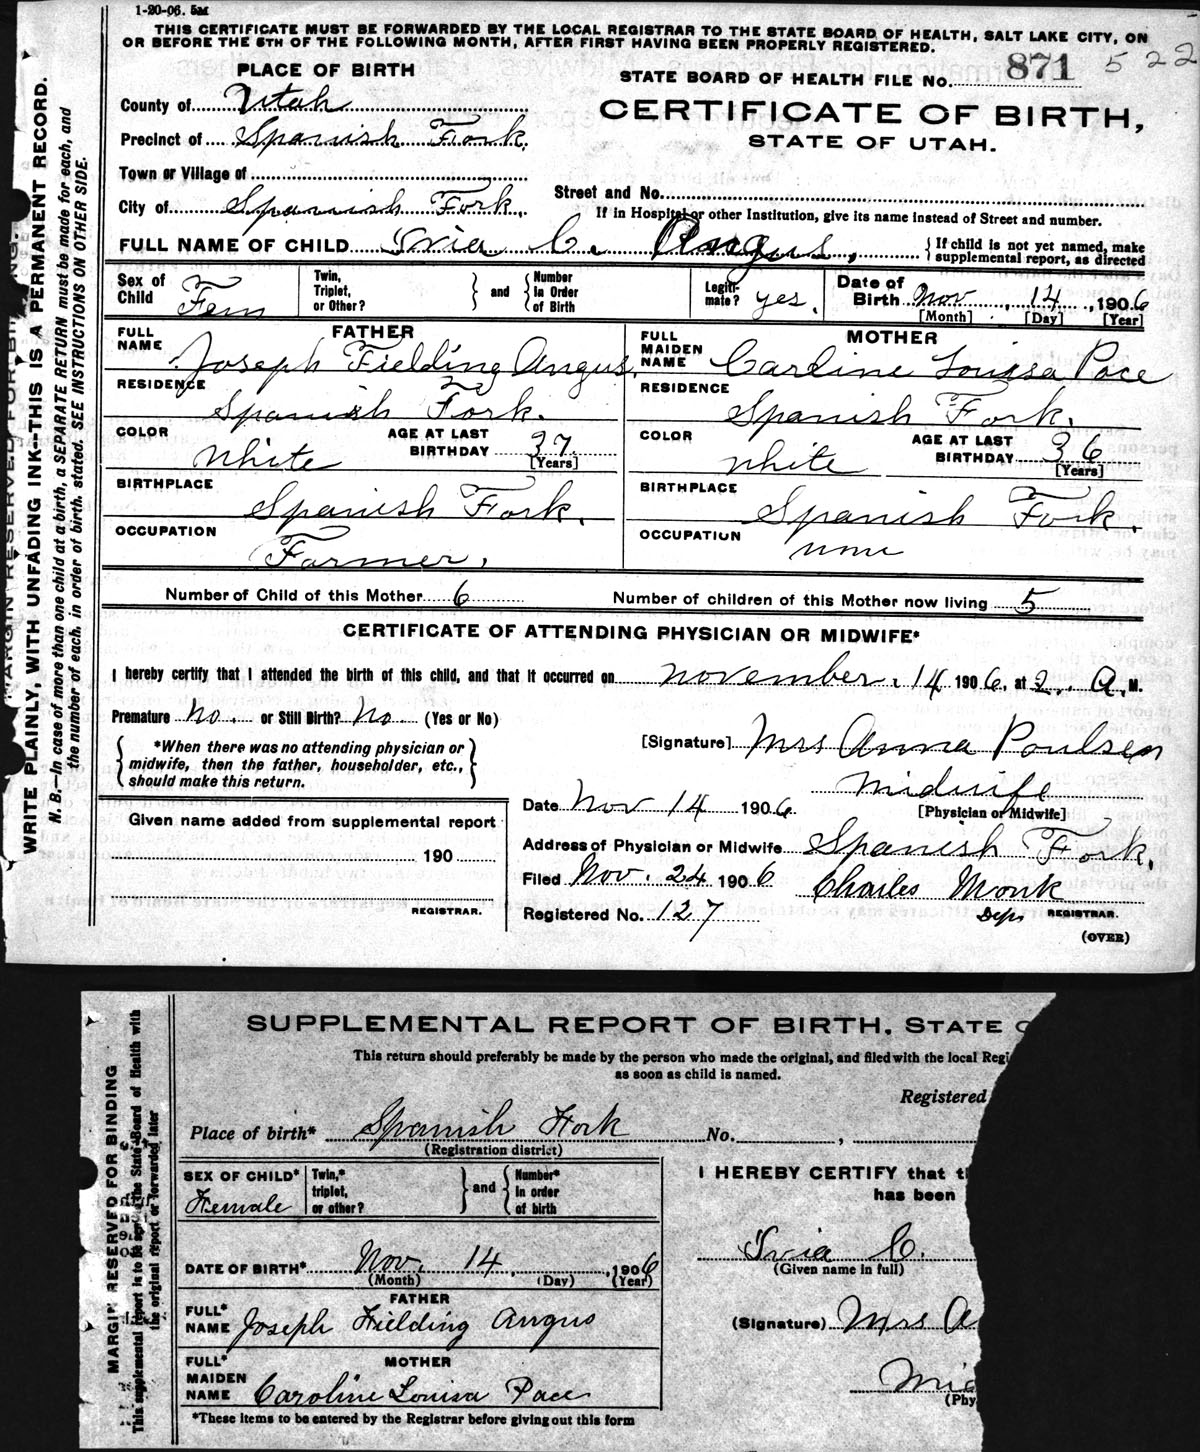 1-20-06. 5M
THIS CERTIFICATE MUST BE FORWARDED BY THE LOCAL REGISTRAR TO THE STATE BOARD OF HEALTH, SALT LAKE CITY, ON
OR BEFORE THE 5TH OF THE FOLLOWING MONTH, AFTER FIRST HAVING BEEN PROPERLY REGISTERED.
PLACE OF BIRTH
STATE BOARD OF HEALTH FILE No. 871 522
County of Utah
CERTIFICATE OF BIRTH,
Precinct of Spanish Fork.
STATE OF UTAH.
Town or Village of
City of Spanish Fork.
Street and No.
If in Hospital or other Institution, give its name instead of Street and number.
FULL NAME OF CHILD C. Angus,
If child is not yet named, make
supplemental report, as directed
Sex of Child Fem
Twin, Triplet, or Other?
and
Number In Order of Birth
Legiti-mate? yes.
Date of Birth Nov, 14, 1906
[Month] [Day] [Year]
FATHER
FULL NAME Joseph Fielding Angus.
RESIDENCE Spanish Fork.
COLOR White
AGE AT LAST BIRTHDAY 37. [Years]
BIRTHPLACE Spanish Fork.
OCCUPATION Farmer.
MOTHER
FULL MAIDEN NAME Carline Louisa Pace
RESIDENCE Spanish Fork.
COLOR White
AGE AT LAST BIRTHDAY 36 [Years]
BIRTHPLACE Spanish Fork.
OCCUPATION none
Number of Child of this Mother 6
Number of children of this Mother now living 5
CERTIFICATE OF ATTENDING PHYSICIAN OR MIDWIFE*
I hereby certify that I attended the birth of this child, and that it occurred on November. 14 1906, at 2. A. M.
Premature No. or Still Birth? No (Yes or No)
*When there was no attending physician or
midwife, then the father, householder, etc.,
should make this return.
[Signature] Mrs Anna Poulsen
Midwife
[Physician or Midwife]
Date Nov 14 1906.
Given name added from supplemental report
190
REGISTRAR.
Address of Physician or Midwife Spanish Fork.
Filed Nov. 24 1906
Charles Monk
Registered No. 127
Dep. REGISTRAR.
(OVER)
MARGIN RESERVED FOR BINDING.
WRITE PLAINLY, WITH UNFADING INK--THIS IS A PERMANENT RECORD.
N. B.—In case of more than one child at a birth, a SEPARATE RETURN must be made for each, and
the number of each, in order of birth, stated. SEE INSTRUCTIONS ON OTHER SIDE.
SUPPLEMENTAL REPORT OF BIRTH, STATE
This return should preferably be made by the person who made the original, and filed with the local Regi
as soon as child is named.
Registered
Place of birth* Spanish Fork No. ,
(Registration district)
SEX OF CHILD* Female
Twin,* triplet, or other?
and
Number* In order of birth
I HEREBY CERTIFY that t
has been
C.
(Given name in full)
DATE OF BIRTH* Nov. 14, 1906
(Month) (Day) (Year)
FATHER
FULL* NAME Joseph Fielding Angus
(Signature) Mrs A
MOTHER
FULL* MAIDEN NAME Caroline Louisa Pace
Mid
(Phy
*These items to be entered by the Registrar before giving out this form
MARGIN RESERVED FOR BINDING
This supplemental report is to be sent the State Board of Health with
the original report or forwarded later